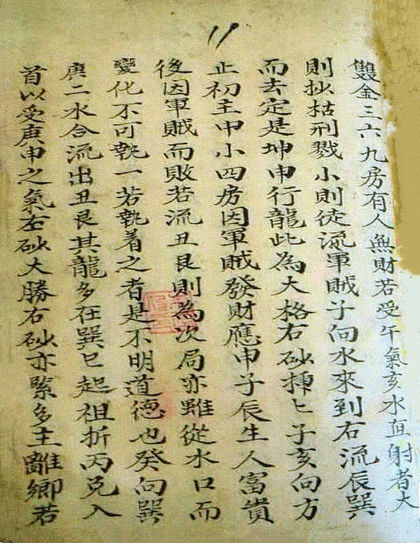 雙金三六九房有人無財若受午氣亥水直射者大
則抄枯刑戮小則徒流軍賊子向水來到右流辰巽
而去定是坤申行龍此為大格右砂揷匕子亥向方
止初主中小四房因軍賊發財應申子辰生人富貴
後因軍賊而敗若流丑艮則為次局亦雖從水口而
變化不可執一若執着之者是不明道德也癸向巽
庚二水合流出丑艮其龍多在巽巳起祖折丙兌入
首以受庚申之氣左砂大勝右砂亦緊多主離鄉若